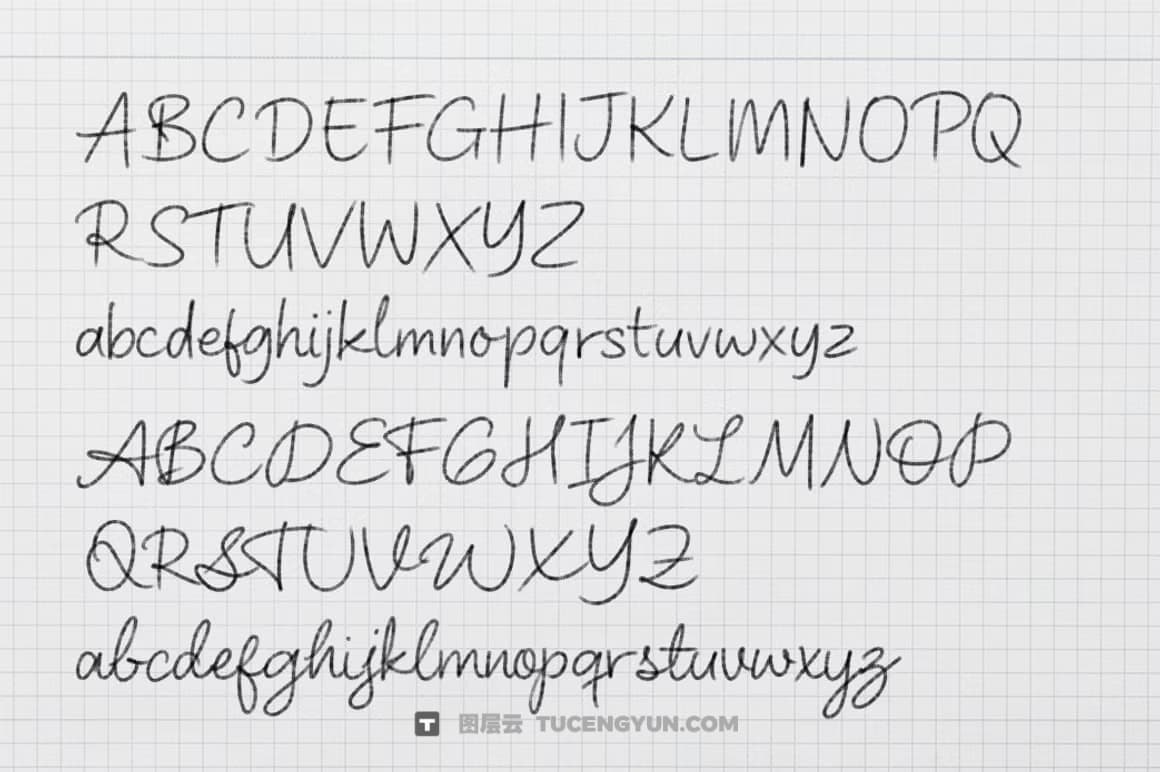 ABCDEFGHIJKLMNOPQ
RSTUVWXYZ
abcdefghijklmnopqrstuvwxyz
ABCDEFGHIJKLMNOP
QRSTUVWXYZ
abcdefghijklmnopqrstuvwxyz
T 图层云 TUCENGYUN.COM